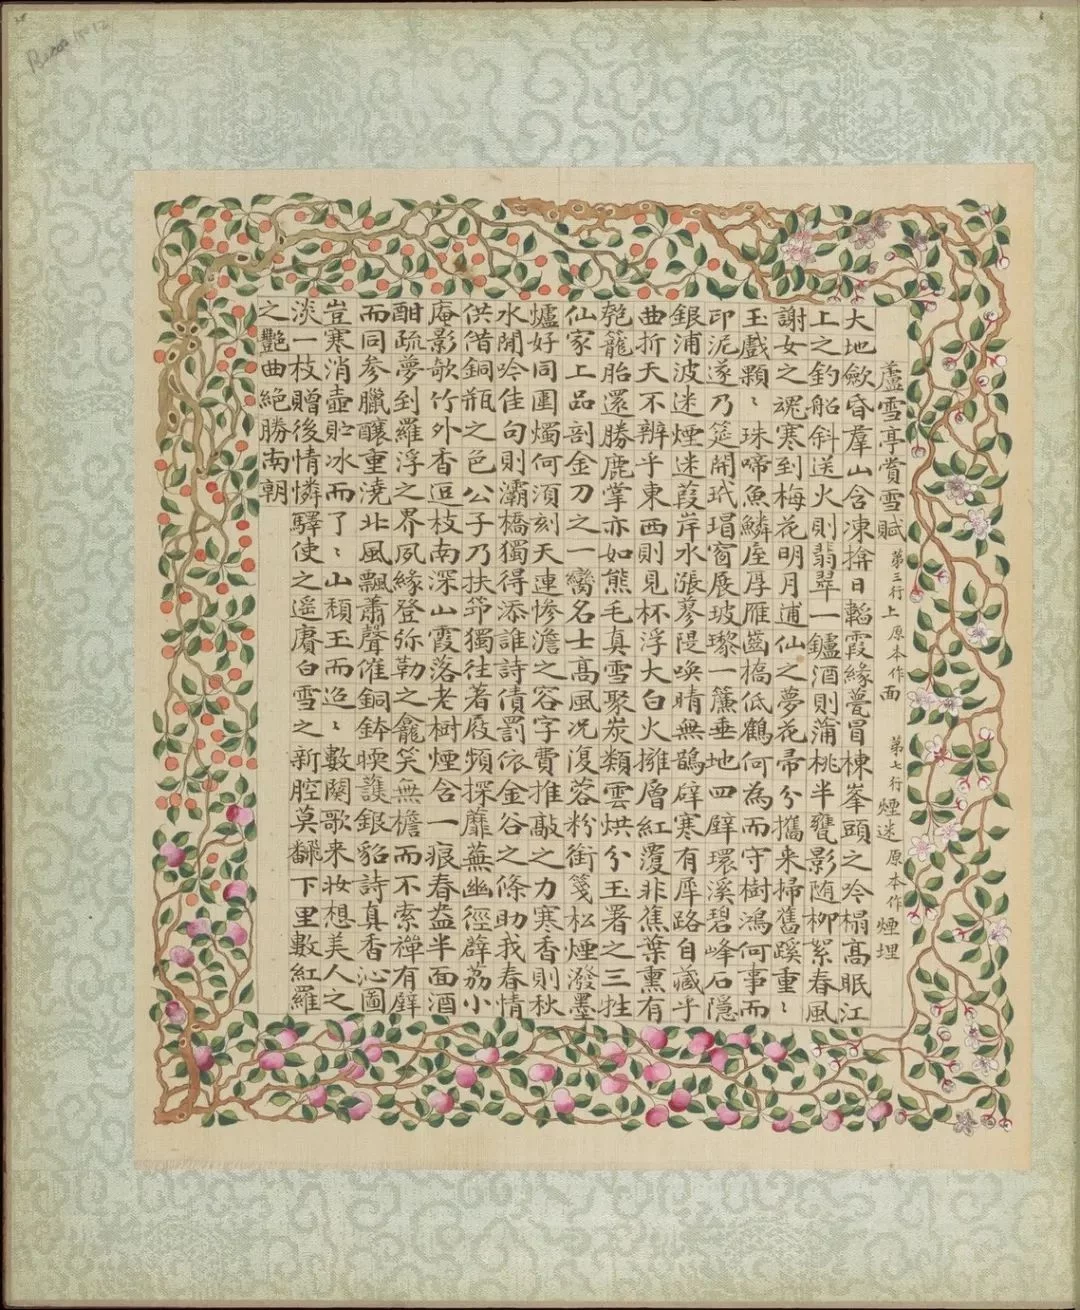 蘆雪亭賞雪賦 第三行上原本作面 第七行煙迷原本作煙埋
大地斂昏羣山含凍揜日韜霞緣甍冒棟峯頭之吟榻高眠江
上之釣船斜送火則翡翠一鑪酒則蒲桃半甕影随柳絮春風
謝女之魂寒到梅花明月逋仙之夢花帚分攜来掃舊蹊重〻
玉戲顆〻珠啼魚鱗庢厚雁齒橋低鶴何為而守樹鴻何事而
印泥遂乃筵開玳瑁窗展玻瓈一簾垂地四壁環溪碧峰石隱
銀浦波迷煙迷葭岸水漲蓼隄喚晴無鵲辟寒有犀路自藏乎
曲折天不辨乎東西則見杯浮大白火擁層紅覆非焦葉熏有
匏籠胎還勝鹿掌亦如熊毛真雪聚炭類雲烘分玉署之三牲
仙家上品剖金刀之一臠名士高風况復蓉粉銜箋松煙潑墨
爐好同圍燭何須刻天連慘澹之容字費推敲之力寒香則秋
水閒吟佳句則灞橋獨得添誰詩債罰依金谷之條助我春情
供借銅瓶之色公子乃扶笻獨往著屐頻探蘼蕪幽徑薜荔小
庵影欹竹外香逗枝南深山霞落老樹煙含一痕春盎半面酒
酣疏夢到羅浮之界夙緣登弥勒之龕笑無檐而不索禪有壁
而同参臘釀重澆北風飄蕭聲催銅鉢煗護銀貂詩真香沁圖
豈寒消壺貯冰而了〻山頹玉而迢〻數闋歌来妝想美人之
淡一枝贈後情憐驛使之遥賡白雪之新腔莫翻下里數紅羅
之艷曲絕勝南朝